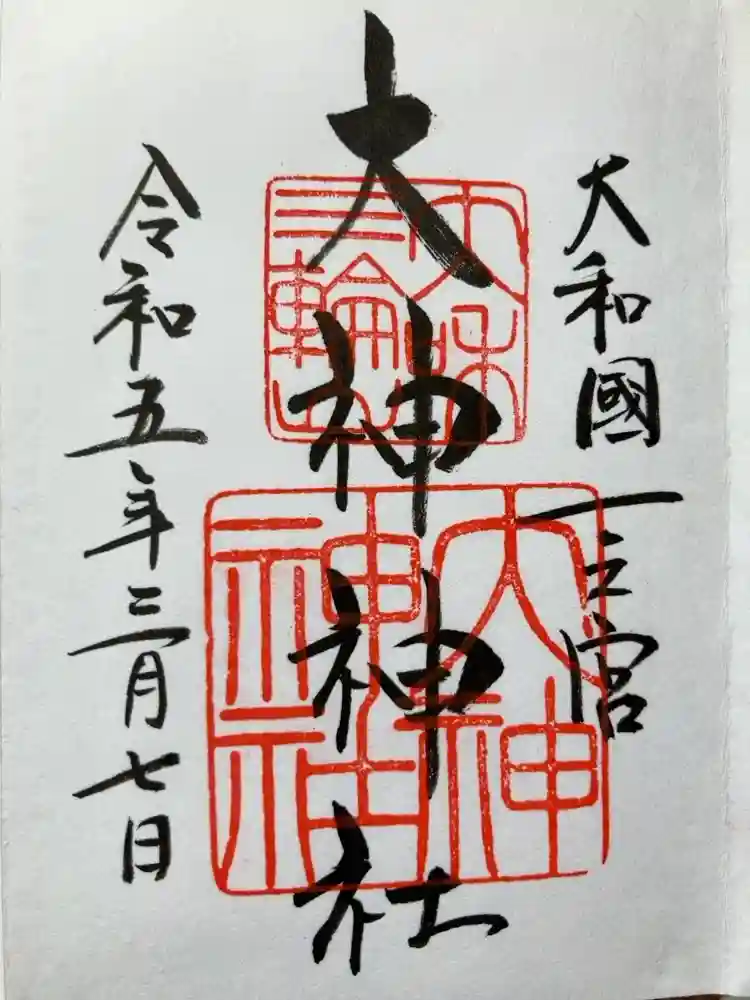 大和國一之宮
大神神社
令和五年三月七日
三輪山
大神
神社